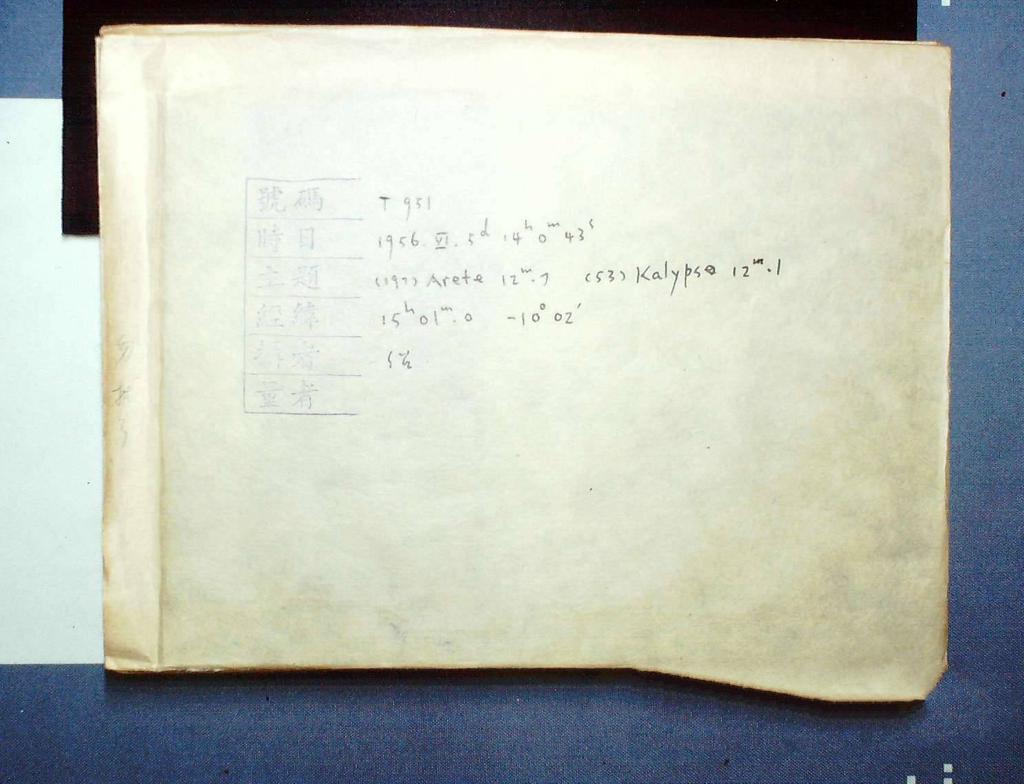 號碼 T 951
時日 1956. VI. 5ᵈ 14ʰ 0ᵐ 43ˢ
主題 (197) Arete 12ᵐ.7 (53) Kalypso 12ᵐ.1
經緯 15ʰ 01ᵐ.0 -10° 02'
者
量者